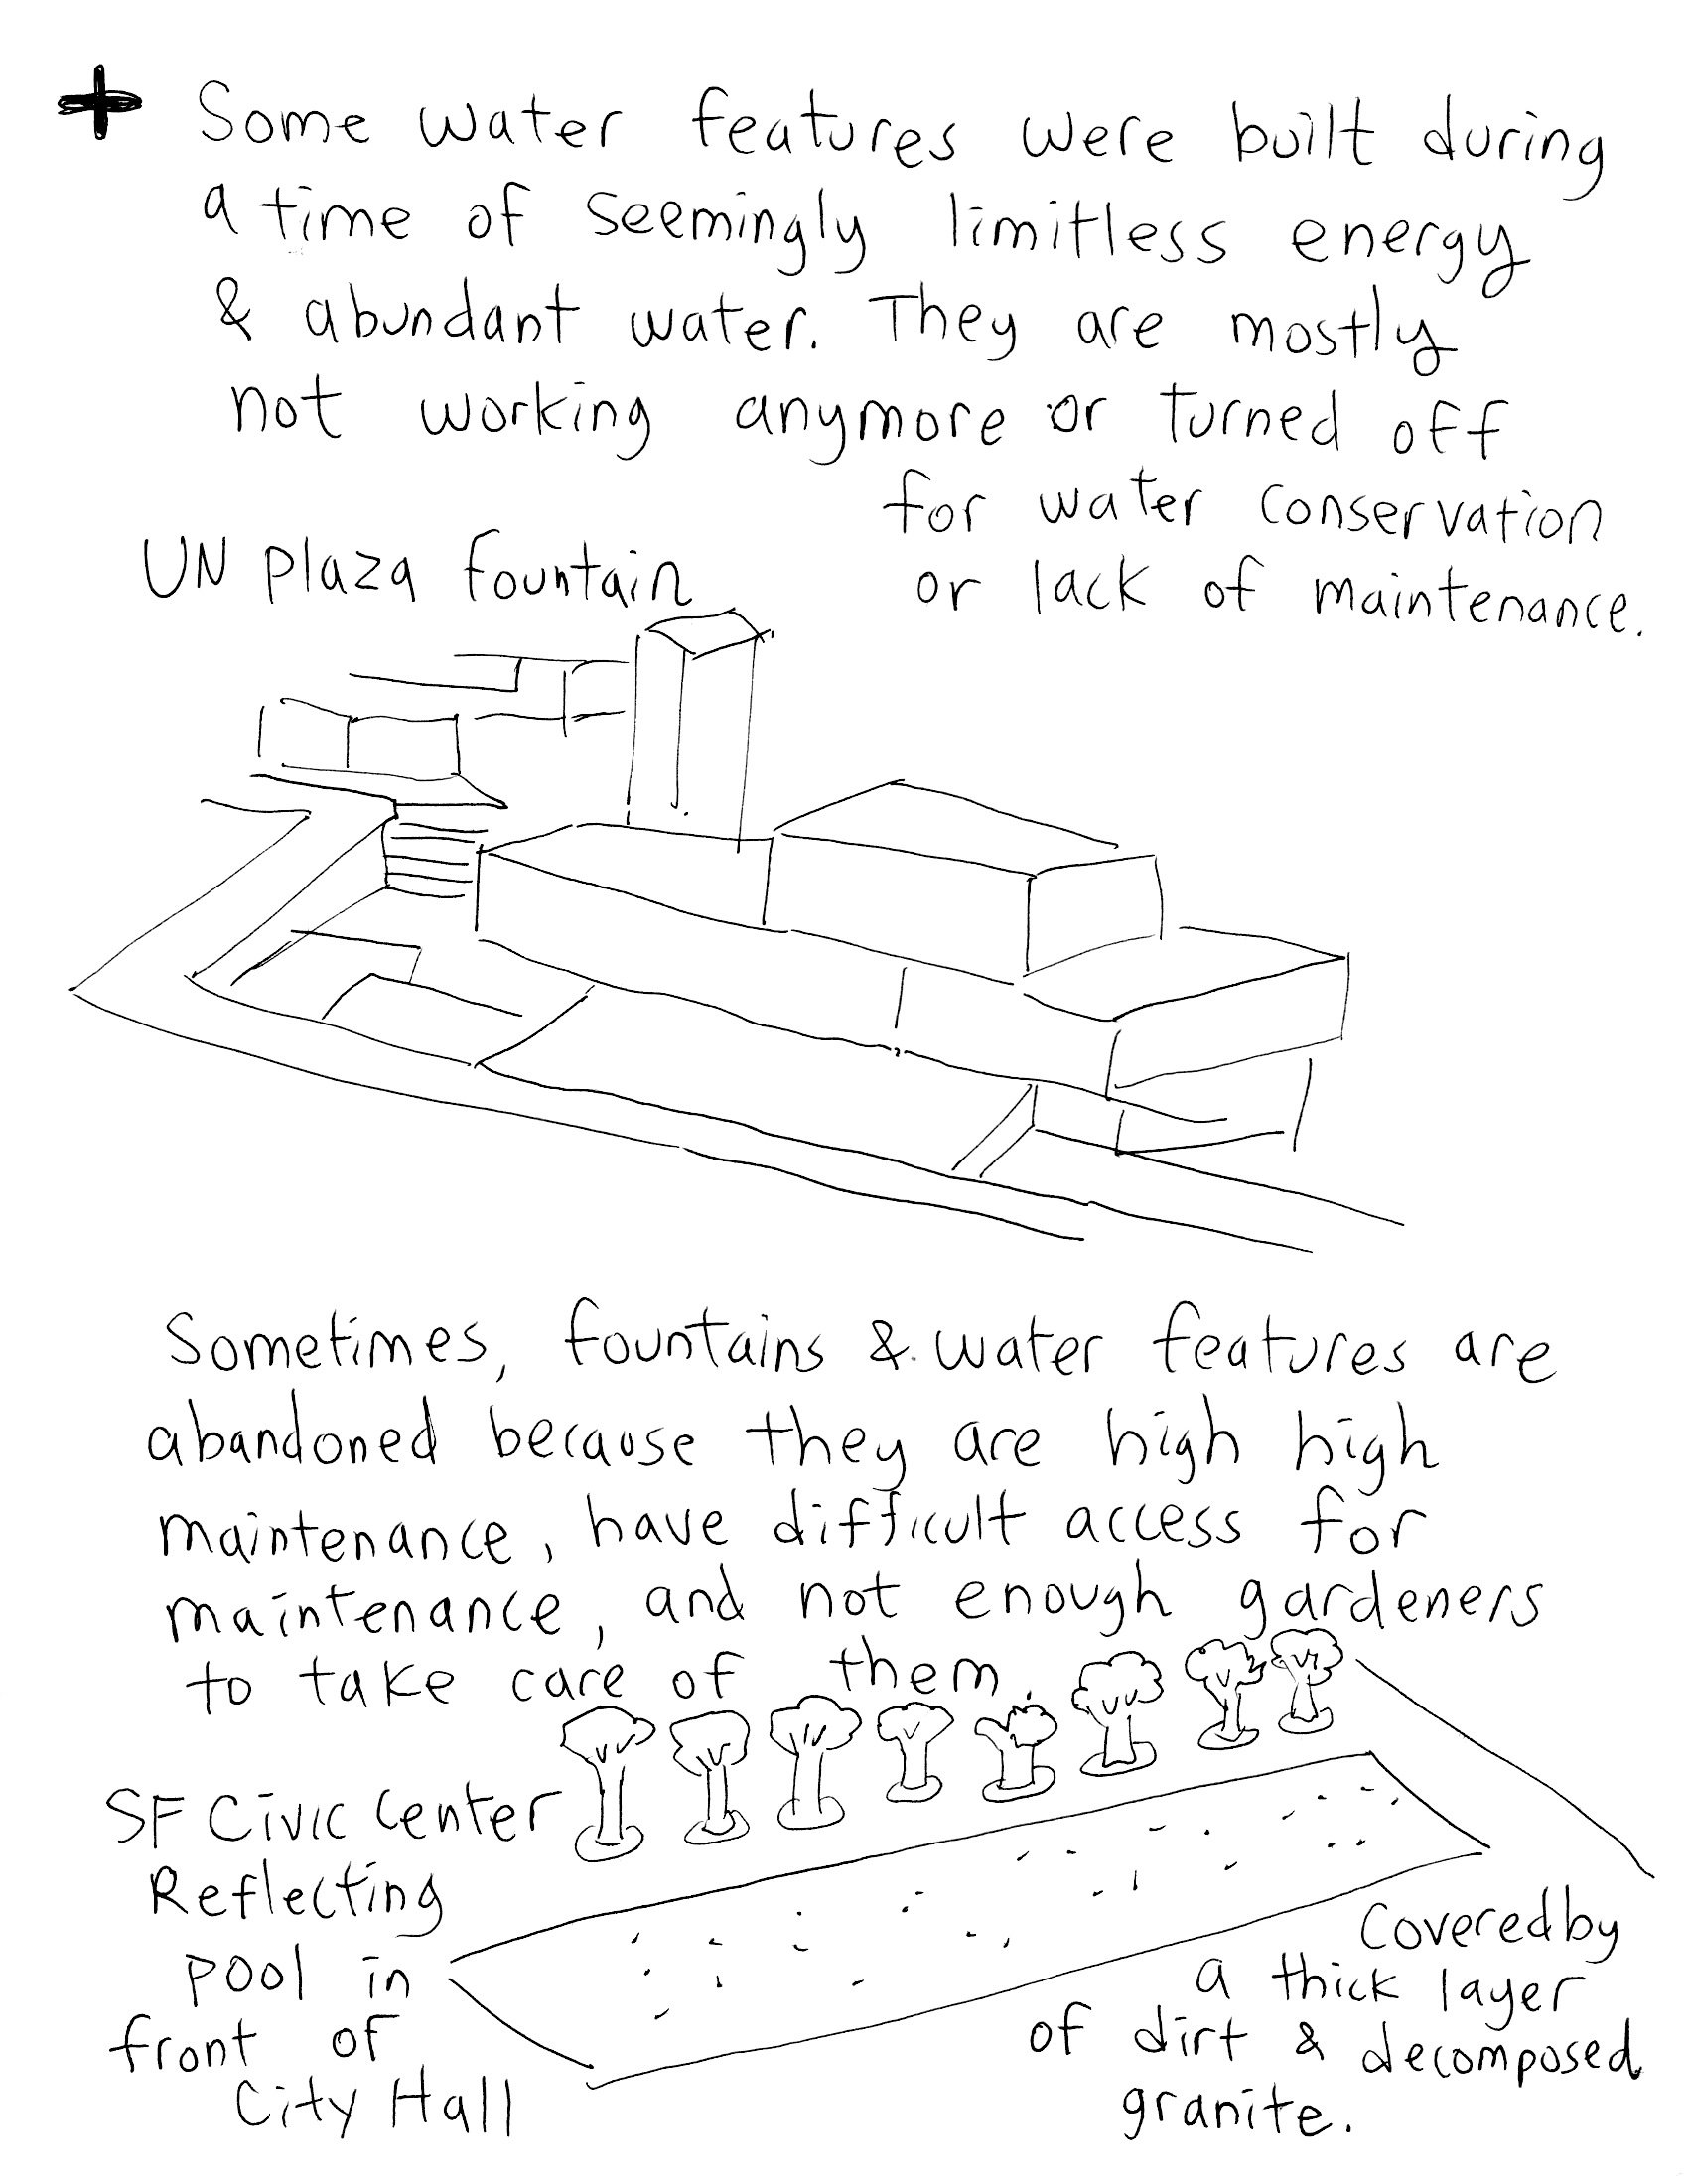 + Some water features were built during
a time of seemingly limitless energy
& abundant water. They are mostly
not working anymore or turned off
for water conservation
or lack of maintenance.
UN plaza fountain
Sometimes, fountains & water features are
abandoned because they are high high
maintenance, have difficult access for
maintenance, and not enough gardeners
to take care of them.
SF Civic Center
Reflecting
pool in
front of
City Hall
Covered by
a thick layer
of dirt & decomposed
granite.